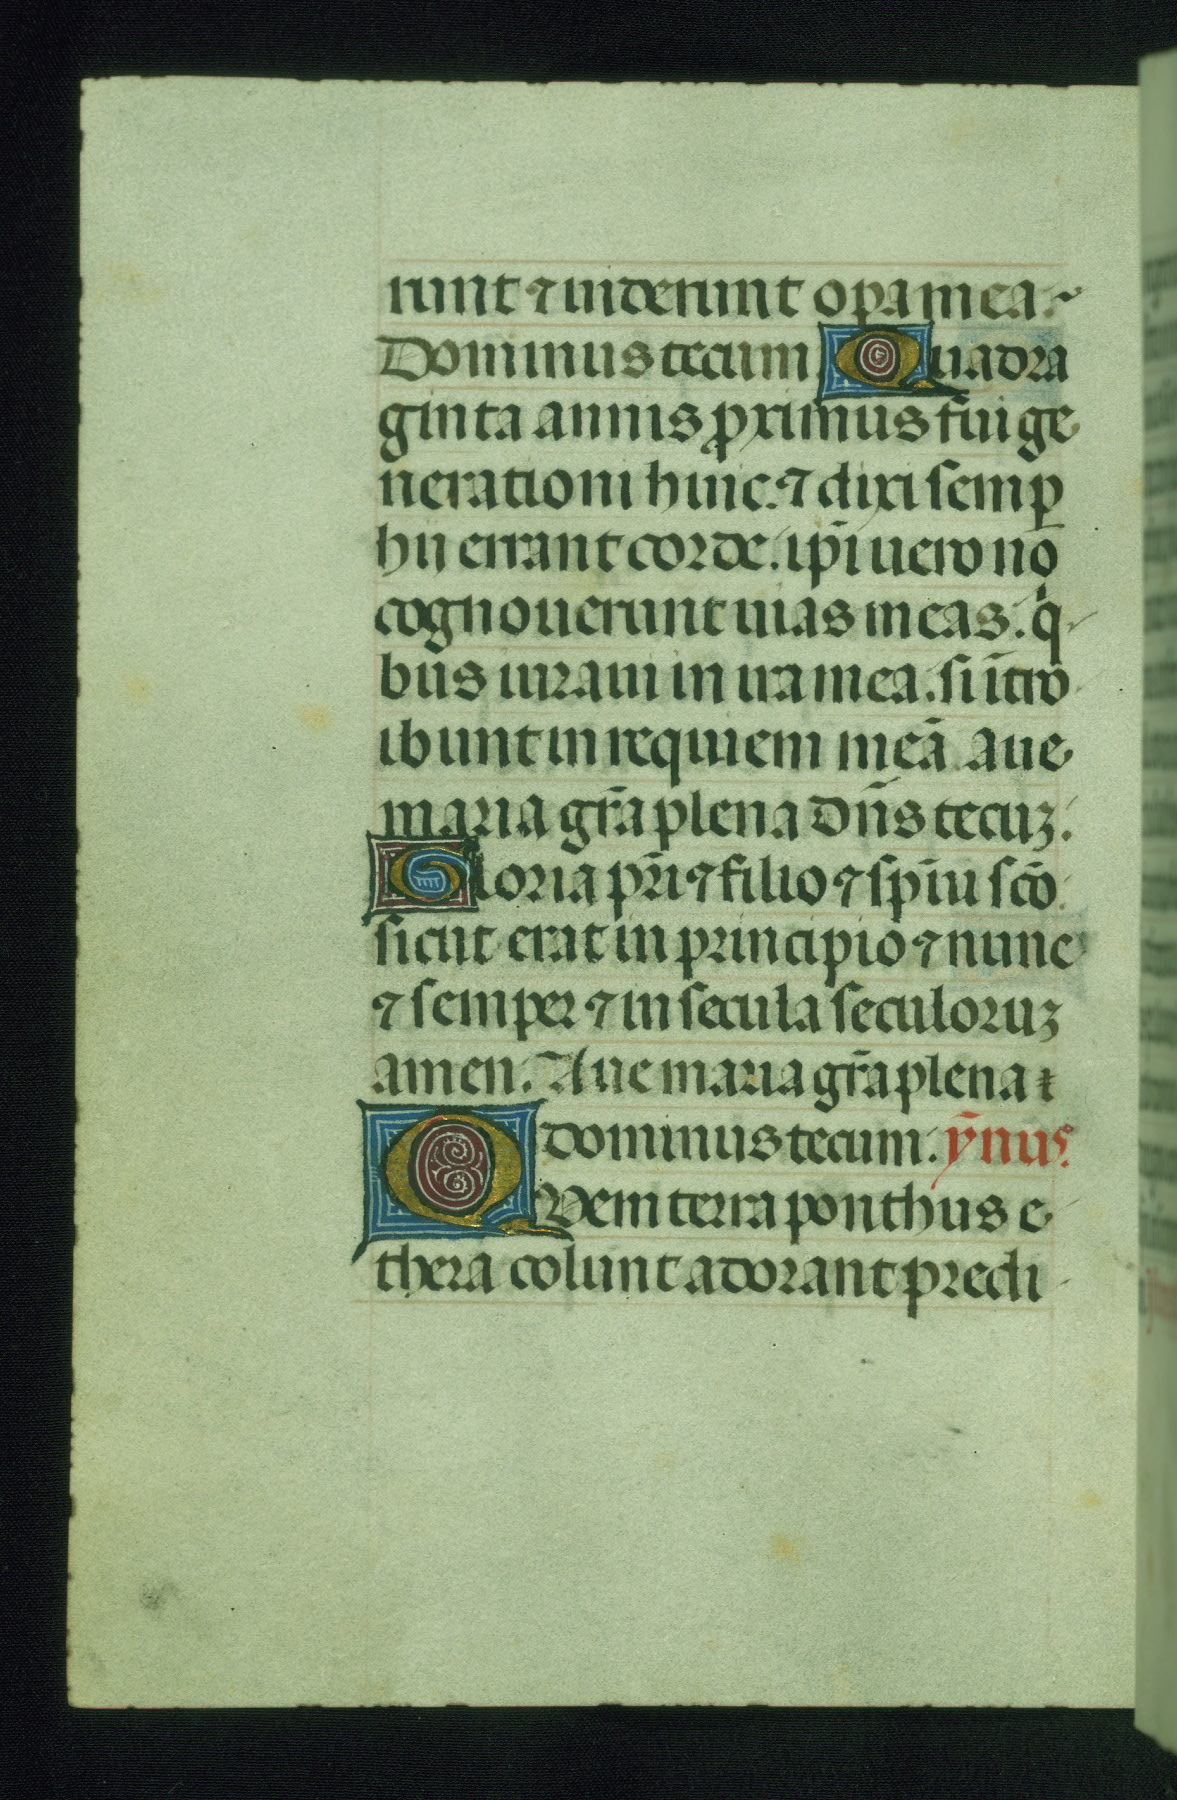 runt ⁊ uiderunt opa mea.
Dominus tecum Quadra
ginta annis ꝓximus fui ge
nerationi huic. ⁊ dixi semꝑ
hii errant corde. ip̄i uero nō
cognouerunt uias meas. qͥ
bus iuraui in ira mea. si ītro
ibunt in requiem meā aue
maria gr̄a plena dn̄s tecuꝫ.
Gloria pr̄i ⁊ filio ⁊ sp̄iu sc̄o
sicut erat in principio ⁊ nunc
⁊ semper ⁊ in secula seculoruꝫ
amen. Aue maria gr̄a plena
dominus tecum. ȳnuꝰ
Quem terra ponthus e
thera colunt adorant predi